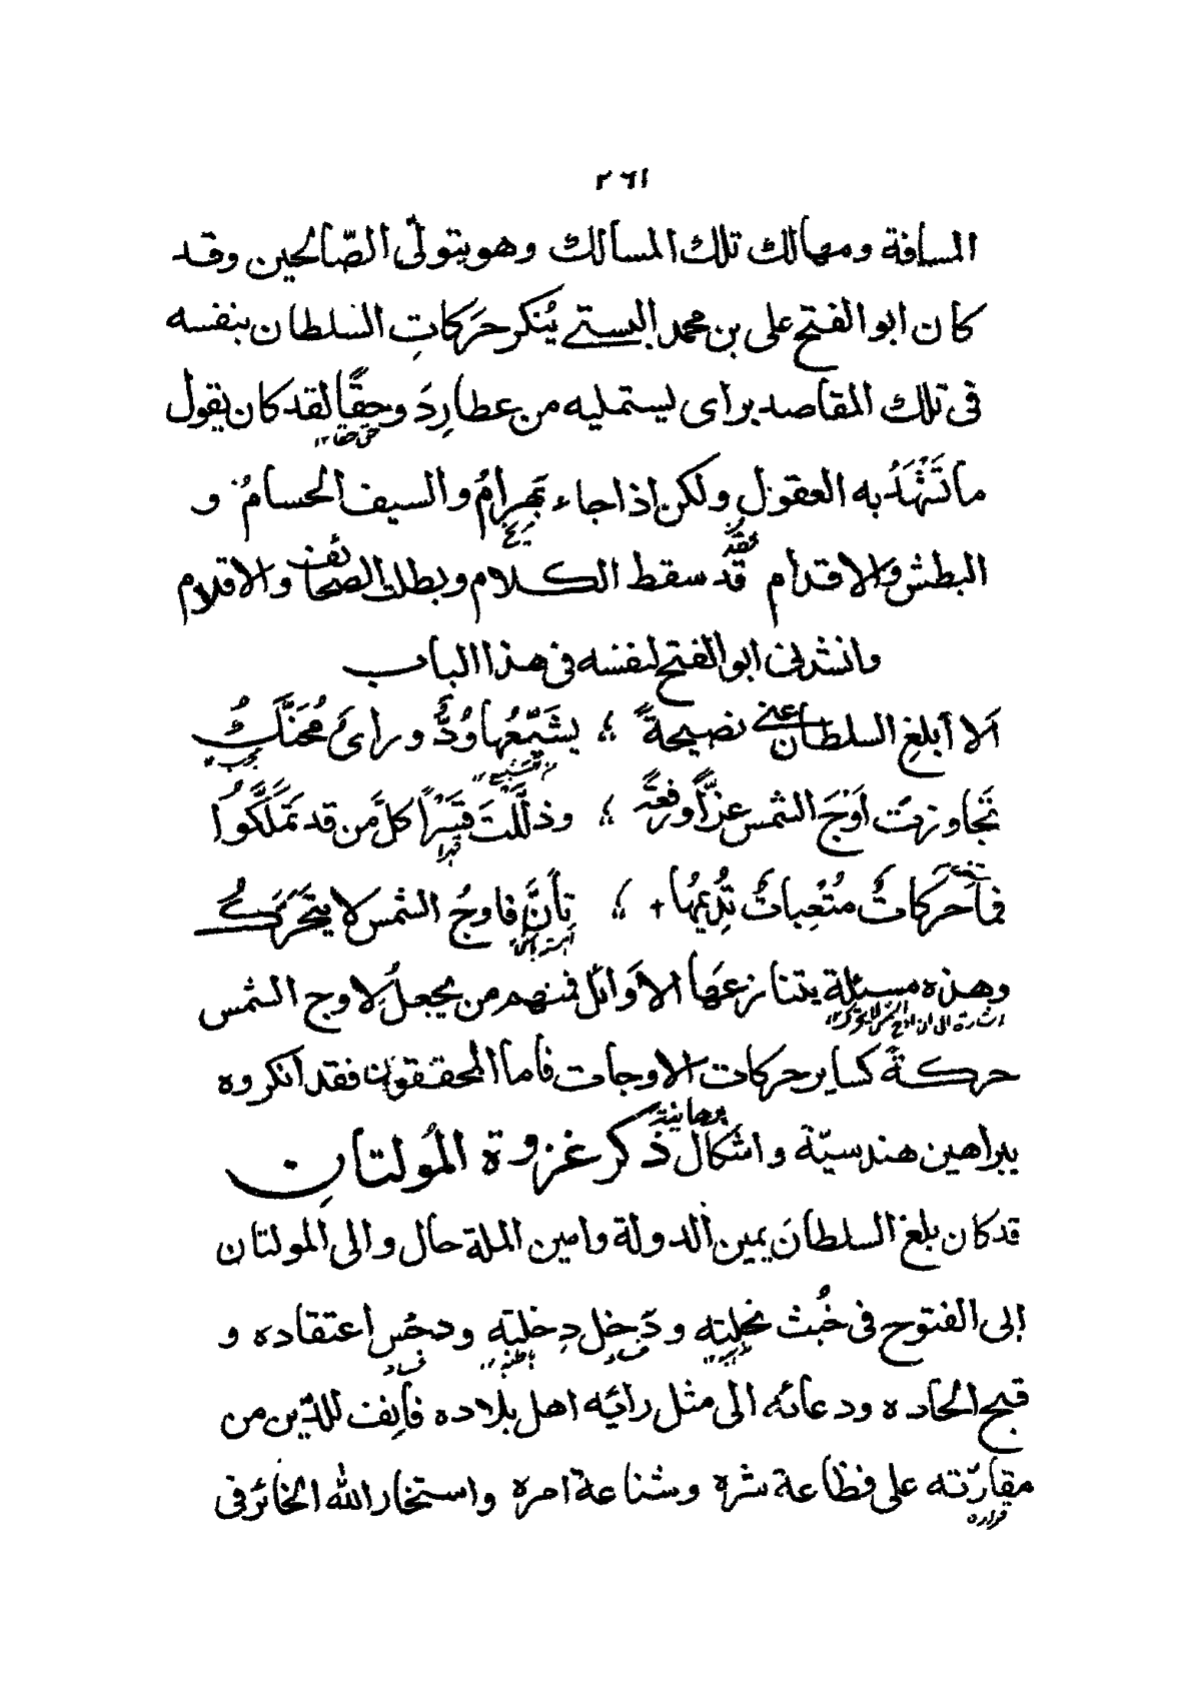 ٢٦١
المسافة ومهالك تلك المسالك وهو يتولّى الصّالحين وقد
كان ابو الفتح على بن محمد البستى يُنكر حَرَكاتِ السلطان بنفسه
فى تلك المقاصد براى يستمليه من عطارِدَ وحِقًّا لقد كان يقول
حق حقا ١٢
ما تَشْهَدُ به العقول ولكن اذا جاء بَهرامُ والسيف الحسامُ و
البطش والاقدام قد سقط الكلام وبطلت الصحائف والاقلام
فقد
وانشدنى ابو الفتح لنفسه فى هذا الباب
اَلا أبلغِ السلطان عنى نصيحةً ؛ يشَيّعُها وُدٌّ ورائ مُحَنَّكُ
تَجاوزتَ اَوْجَ الشمس عزّاً ورِفعةً ؛ وذلّلتَ قَسْراً كلَّ مَن قد تَمَلَّكُوا
قهرا
فما حَرَكاتٌ مُتْعِباتٌ تُدِيمُها ؛ تأنَّ فاوجُ الشمس لا يتحَرَّكُ
وهذه مسئلة يتنازعَها الاَوائل فمنهم من يجعلُ لِاوج الشمس
اشارة الى ان اوج الشمس لا يتحرك ١٢
حركةً كساير حركات الاوجات فأما المحققون فقد انكروه
ببراهين هندسيّة واشكال برهانية ذكر غزوة المُولتانِ
قد كان بلغ السلطانَ يمين الدولة وامين الملة حال والى المولتان
ابى الفتوح فى خُبث نِحلِتِه ودَخِل دِخلتِه ودحَس اعتقاده و
باطنه ١٢
فساد
قبح الحاده ودعائه الى مثل رائِه اهل بلاده فأنِف للدّين من
مقارّته على فظاعة شره وشناعة امره واستخار الله الخائر فى